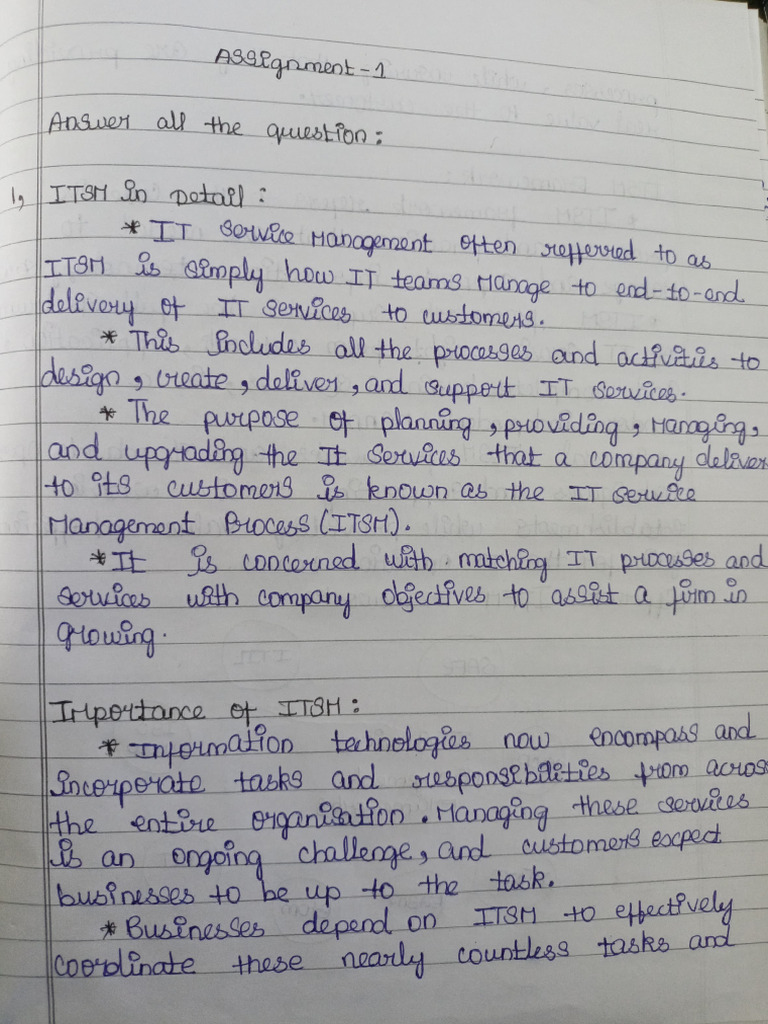 Assignment-1
Answer all the question:
1, ITSM in Detail:
* IT Service Management often refferred to as
ITSM is simply how IT teams Manage to end-to-end
delivery of IT services to customers.
* This includes all the processes and activities to
design, create, deliver, and support IT services.
* The purpose of planning, providing, Managing,
and upgrading the It services that a company deliver
to its customers is known as the IT service
Management Process (ITSM).
* It is concerned with matching IT processes and
services with company objectives to assist a firm in
growing.
Importance of ITSM:
* Information technologies now encompass and
incorporate tasks and responsibilities from across
the entire organisation. Managing these services
is an ongoing challenge, and customers expect
businesses to be up to the task.
* Businesses depend on ITSM to effectively
coordinate these nearly countless tasks and